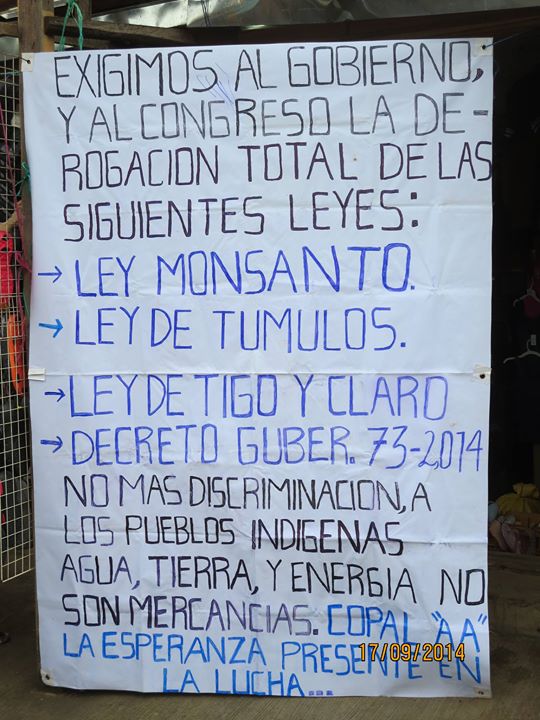 EXIGIMOS AL GOBIERNO,
Y AL CONGRESO LA DE-
ROGACION TOTAL DE LAS
SIGUIENTES LEYES:
→ LEY MONSANTO.
→ LEY DE TUMULOS.
→ LEY DE TIGO Y CLARO
→ DECRETO GUBER. 73-2,014
NO MAS DISCRIMINACION, A
LOS PUEBLOS INDIGENAS
AGUA, TIERRA, Y ENERGIA NO
SON MERCANCIAS. COPAL "AA"
LA ESPERANZA PRESENTE EN
LA LUCHA...
17/09/2014